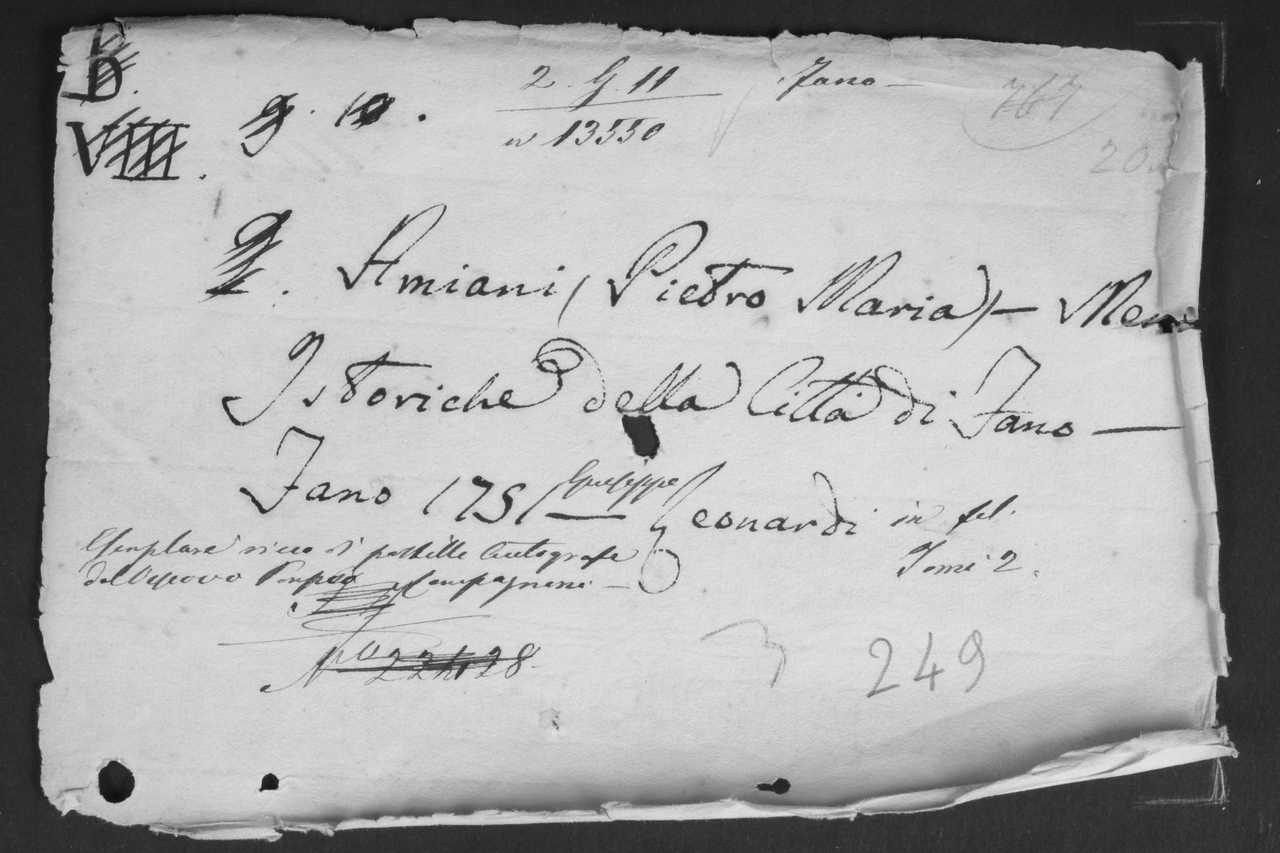 D.
VIIII.
g. 10.
2. G. 11
n 13550
Fano —
767
20
2. Amiani (Pietro Maria) — Mem
Istoriche della Città di Fano —
Fano 1751 Giuseppe Leonardi in fol.
Tomi 2.
Esemplare ricco di postille autografe
del Vescovo Pompeo Compagnoni —
N.o 22428
249